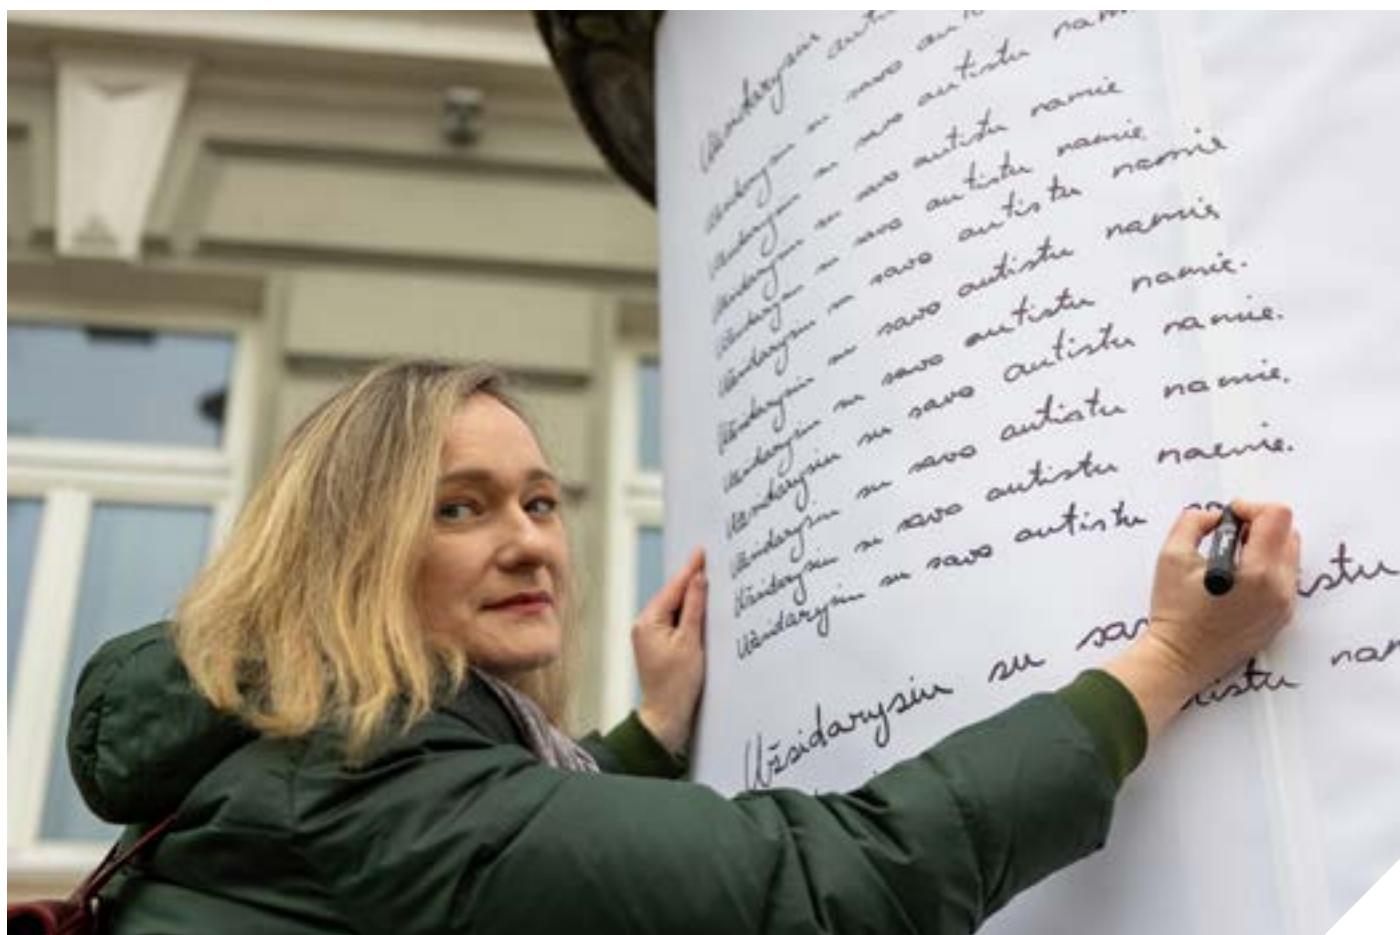 Užsidarysiu
Užsidarysiu su savo
Užsidarysiu su savo autistu nam
Užsidarysiu su savo autistu namie
Užsidarysiu su savo autistu namie
Užsidarysiu su savo autistu namie
Užsidarysiu su savo autistu namie
Užsidarysiu su savo autistu namie.
Užsidarysiu su savo autistu namie.
Užsidarysiu su savo autistu namie.
Užsidarysiu su savo autistu namie.
Užsidarysiu su savo autistu
Užsidarysiu su sav istu
tistu nam